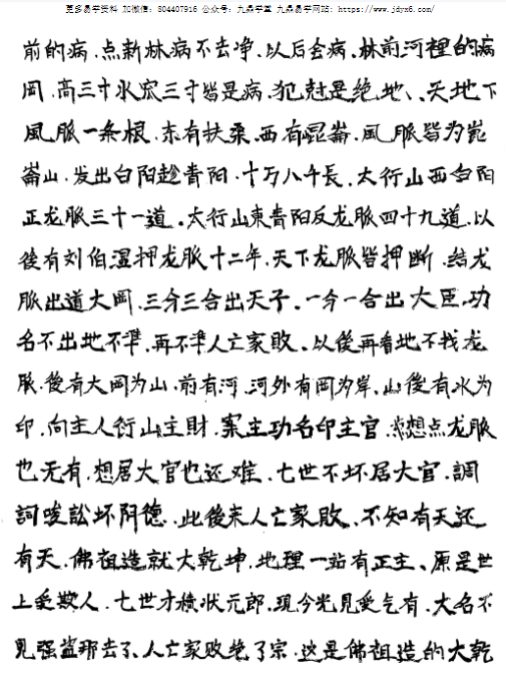 更多易学资料 加微信：804407916 公众号：九鼎学堂 九鼎易学网站：https://www.jdyx6.com/
前的病．点新林病不去净．以后会病．林前河裡的病
岡．高三寸水宽三寸皆是病．犯尅是绝地、．天地下
風脈一条根．东有扶桑．西有崑崙．風脈皆为崑
崙山．发出白阳趁青阳．十万八千長．太行山西白阳
正龙脈三十一道．太行山東青阳反龙脈四十九道．以
後有刘伯温押龙脈十二年．天下龙脈皆押断．结龙
脈出道大岡．三分三合出天子．一分一合出大臣．功
名不出地不準．再不準人亡家敗．以後再看地不找龙
脈．後有大岡为山．前有河．河外有岡为岸．山後有水为
印．向主人衍山主財．案主功名印主官．想点龙脈
也无有．想居大官也还难．七世不坏居大官．調
詞唆訟坏阴德．此後末人亡家敗．不知有天还
有天．佛祖造就大乾坤．地理一站有正主、原是世
上受欺人．七世才積状元郎．现今光見受气有．大名不
見强盗那去了．人亡家败绝了宗．这是佛祖造的大乾